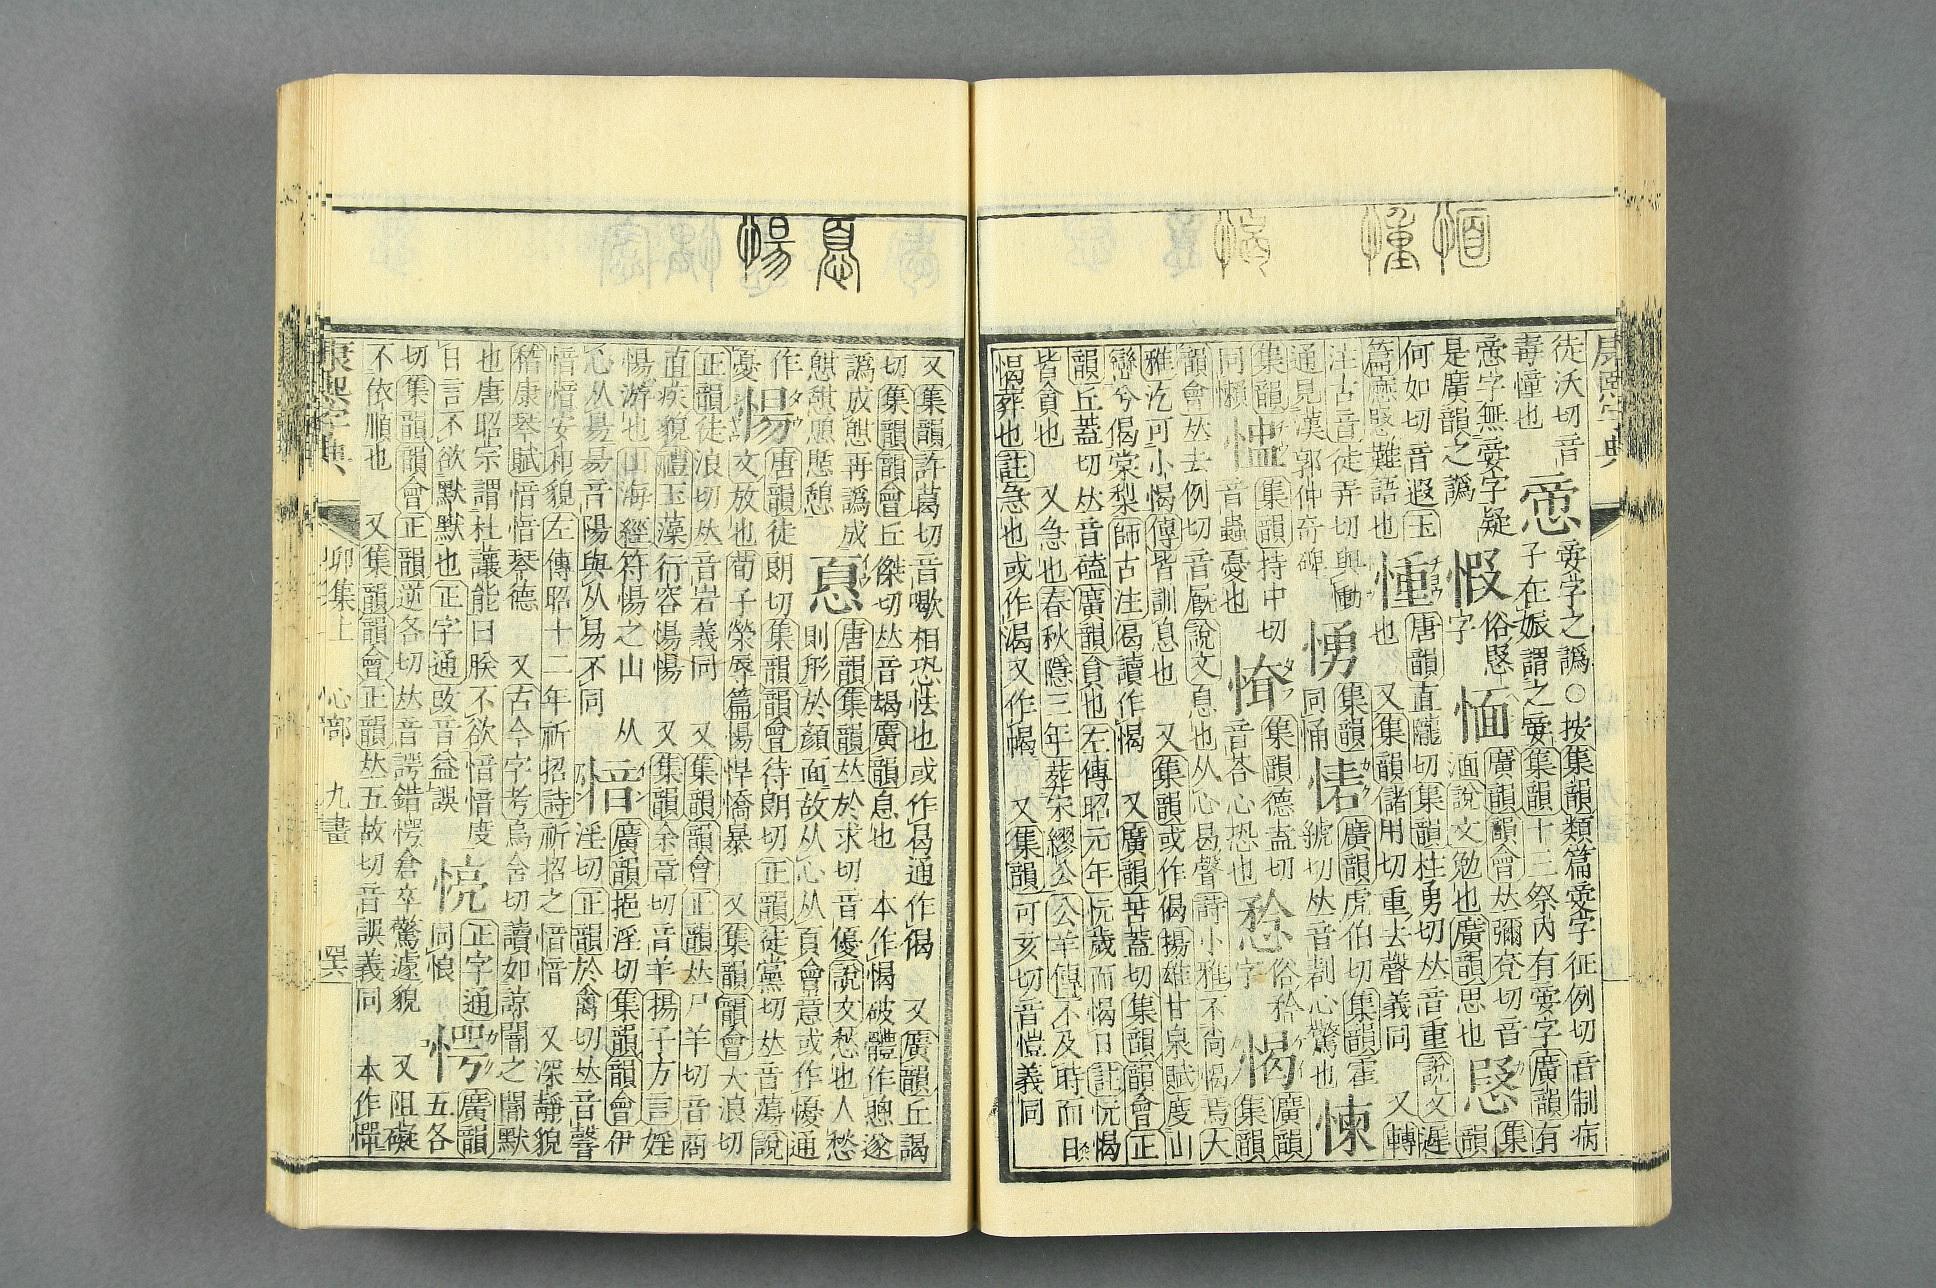 恦 憧 愒
康熙字典
徒沃切音
毒憧也
㤅
䙳字之譌○按集韻類篇䙳字征例切音制病
子在娠謂之䙳集韻十三祭內有䙳字廣韻有
是廣韻之譌
愐
廣韻韻會𠀤彌兗切音
湎說文勉也廣韻思也
何如切音遐玉
篇㥦㥦難語也
㥁
唐韻直隴切集韻柱勇切𠀤音重說文遲
也 又集韻儲用切重去聲義同 又轉
注古音徒弄切與慟
通見漢郭仲奇碑
愑
集韻
同悀
愘
廣韻虎伯切集韻霍
虢切𠀤音剨心驚也
愞
集韻
同懶
集韻持中切
音蟲憂也
集韻德盍切
音荅心恐也
俗矜
字
愒
廣韻
集韻
韻會𠀤去例切音厩說文息也从心曷聲詩小雅不尚愒焉大
雅汔可小愒傳皆訓息也 又集韻或作偈揚雄甘泉賦度山
巒兮偈棠梨師古注偈讀作愒 又廣韻苦蓋切集韻韻會正
韻丘蓋切𠀤音磕廣韻貪也左傳昭元年忨歲而愒日註忨愒
皆貪也 又急也春秋隱三年葬宋繆公公羊傳不及時而日
愒葬也註急也或作渴又作㵣 又集韻可亥切音愷義同
息 愓
又集韻許葛切音喝相恐怯也或作曷通作偈 又廣韻丘謁
切集韻韻會丘傑切𠀤音朅廣韻息也 本作愒破體作憩遂
譌成憇再譌成
憇憩
㥑
唐韻集韻𠀤於求切音優說文愁也人愁
則形於顏面故从心从頁會意或作懮通
作
憂
愓
唐韻徒朗切集韻韻會待朗切正韻徒黨切𠀤音蕩說
文放也荀子榮辱篇愓悍憍暴 又集韻韻會大浪切
正韻徒浪切𠀤音宕義同 又集韻韻會正韻𠀤尸羊切音商
直疾貌禮玉藻行容愓愓 又集韻余章切音羊揚子方言婬
愓游也山海經符愓之山 从
心从昜昜音陽與从易不同
愔
廣韻挹淫切集韻韻會伊
淫切正韻於禽切𠀤音䧹
愔愔安和貌左傳昭十二年祈招詩祈招之愔愔 又深靜貌
稽康琴賦愔愔琴德 又古今字考烏含切讀如諒闇之闇默
也唐昭宗謂杜讓能曰朕不欲愔愔度
日言不欲默默也正字通攺音益誤
正字通
同悢
愕
廣韻
五各
切集韻韻會正韻逆各切𠀤音諤錯愕倉卒驚遽貌 又阻礙
不依順也 又集韻韻會正韻𠀤五故切音誤義同 本作㦍
康熙字典 卯集上 心部 九畫 四六